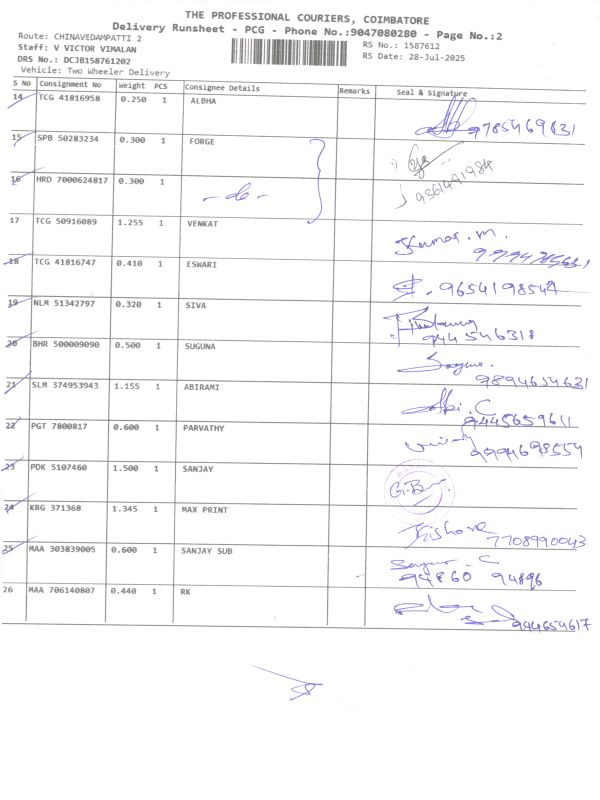 THE PROFESSIONAL COURIERS, COIMBATORE
Delivery Runsheet - PCG - Phone No.:9047080280 - Page No.:2
Route: CHINAVEDAMPATTI 2
RS No.: 1587612
Staff: V VICTOR VIMALAN
RS Date: 28-Jul-2025
DRS No.: DCJB158761202
Vehicle: Two Wheeler Delivery
S No Consignment No Weight PCS Consignee Details Remarks Seal & Signature
14 TCG 41816958 0.250 1 ALBHA
15 SPB 50283234 0.300 1 FORGE
16 HRD 7000624817 0.300 1 9361491984
17 TCG 50916089 1.255 1 VENKAT Kumar.M.
18 TCG 41816747 0.410 1 ESWARI 9654198547
19 NLM 51342797 0.320 1 SIVA 944546318
20 BHR 500009090 0.500 1 SUGUNA 9894654631
21 SLM 374953943 1.155 1 ABIRAMI Abi.C 9445659611
22 PGT 7800817 0.600 1 PARVATHY 9994698554
23 PDK 5107460 1.500 1 SANJAY
24 KRG 371368 1.345 1 MAX PRINT Kishore 7708990043
25 MAA 303839005 0.600 1 SANJAY SUB 94860 94896
26 MAA 706140807 0.440 1 RK 944654617